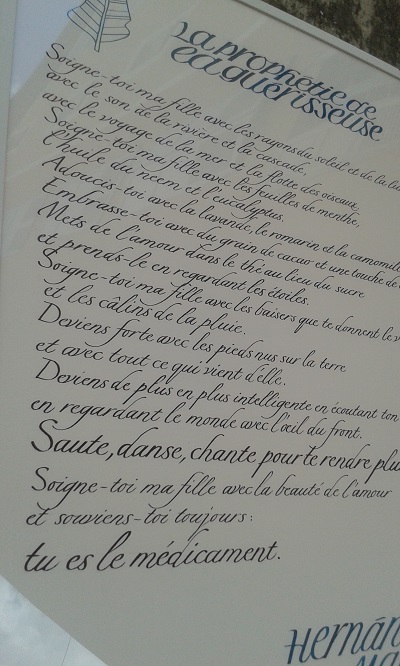 La prophétie de
la guérisseuse
Soigne-toi ma fille avec les rayons du soleil et de la
avec le son de la rivière et la cascade,
avec le voyage de la mer et la flotte des oiseaux,
Soigne-toi ma fille avec les feuilles de menthe,
l'huile du neem et l'eucalyptus.
Adoucis-toi avec la lavande, le romarin et la camomille
Embrasse-toi avec du grain de cacao et une touche de
Mets de l'amour dans le thé au lieu du sucre
et prends-le en regardant les étoiles.
Soigne-toi ma fille avec les baisers que te donnent le
et les câlins de la pluie.
Deviens forte avec les pieds nus sur la terre
et avec tout ce qui vient d'elle.
Deviens de plus en plus intelligente en écoutant ton
en regardant le monde avec l'œil du front.
Saute, danse, chante pour te rendre plu
Soigne-toi ma fille avec la beauté de l'amour
et souviens-toi toujours:
tu es le médicament.
Hernán